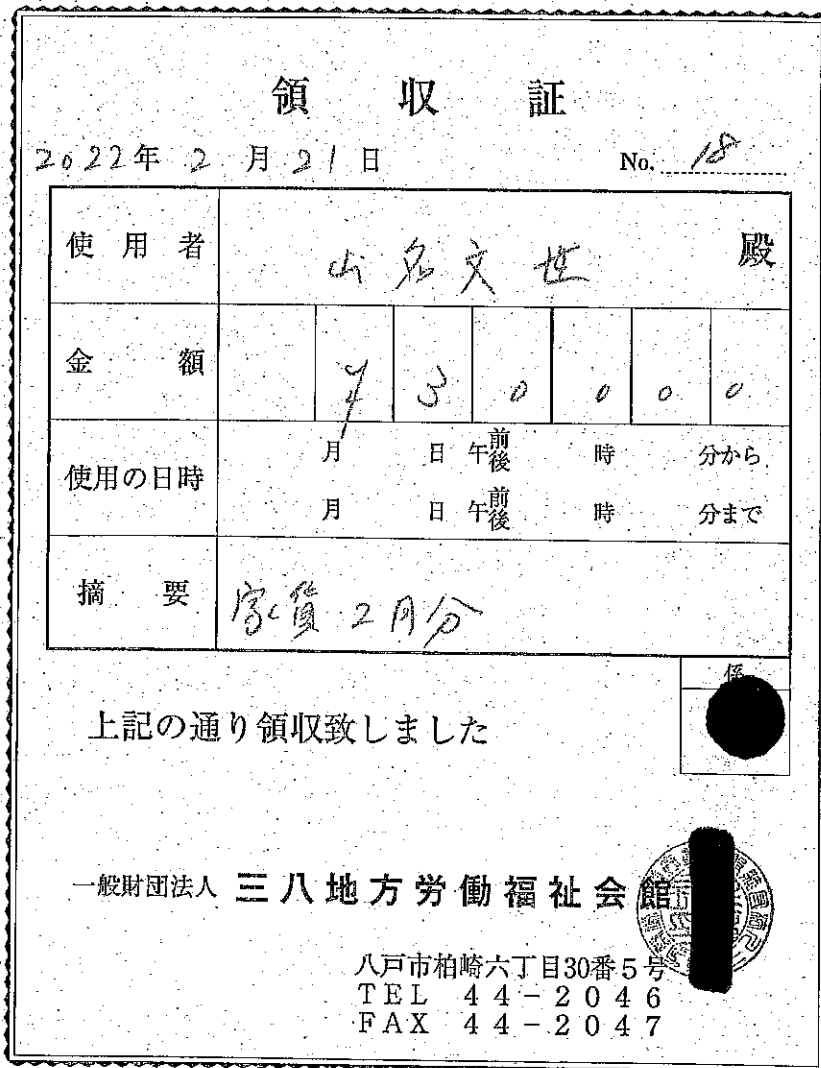 領収証
2022年 2月21日 No. 18
使用者 山名文世 殿
金額 ¥30000
使用の日時 月 日 午前後 時 分から
月 日 午前後 時 分まで
摘要 家賃2月分
係
上記の通り領収致しました
一般財団法人 三八地方労働福祉会館
八戸市柏崎六丁目30番5号
TEL 44-2046
FAX 44-2047